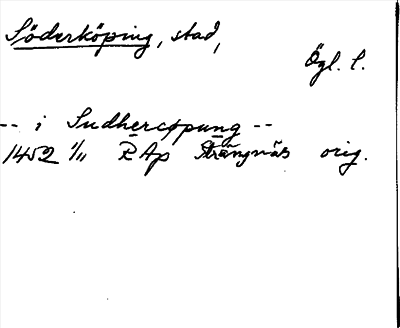 Söderköping, stad,
Ögl. l.
-- i Sudhercopung --
1452 1/11 RAp Strängnäs orig.